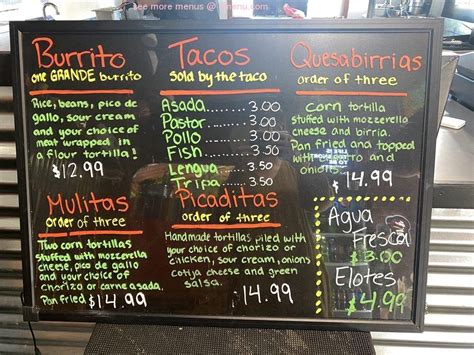 see more menus @ menu.com
Burrito
one GRANDE burrito
Rice, beans, pico de
gallo, sour cream
and your choice of
meat wrapped in
a flour tortilla!
$12.99
Tacos
sold by the taco
Asada........ 3.00
Pastor....... 3.00
Pollo......... 3.00
Fish.......... 3.50
Lengua....... 3.50
Tripa......... 3.50
Quesabirrias
order of three
corn tortilla
stuffed with mozzerella
cheese and birria.
Pan fried and topped
with and
onions.
$14.99
Mulitas
order of three
Two corn tortillas
stuffed with mozzerella
cheese, pico de gallo
and your choice of
chorizo or carne asada.
Pan fried $14.99
Picaditas
order of three
Handmade tortillas piled with
your choice of chorizo or
chicken, sour cream, onions
cotija cheese and green
salsa.
$14.99
Agua
Fresca
$3.00
Elotes
$4.99